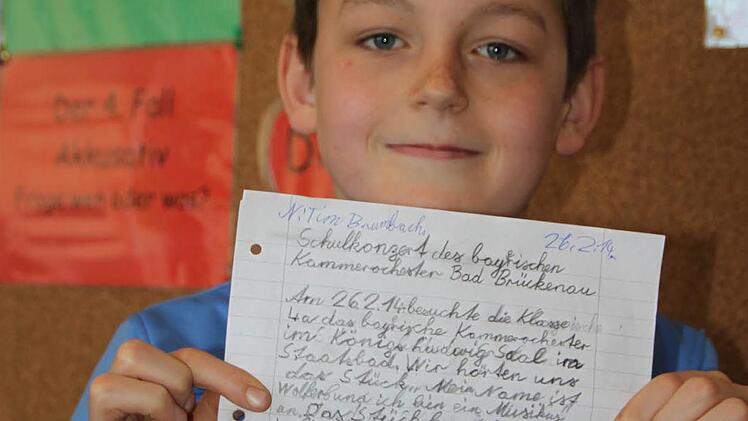 Der 4. Fall
Akkusativ
Frage: wen oder was?
D
N: Tim Baumbach, 26.2.14
Schulkonzert des bayrischen
Kammerochester Bad Brückenau
Am 26.2.14 besuchte die Klasse
4a das bayrische Kammerochester
im König Ludwig Saal in
Staatbad. Wir hörten uns
das Stück „Mein Name ist
und ich bin ein Musikus
an. Das Stück